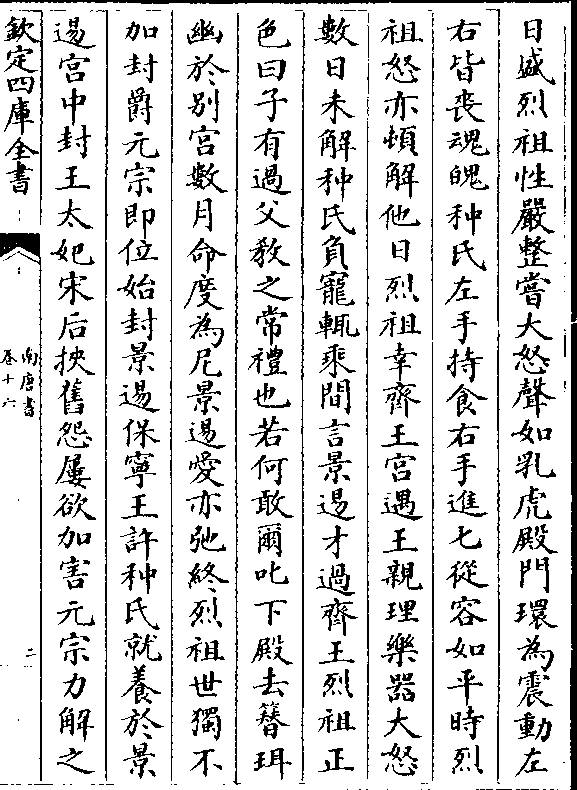 日盛烈祖性嚴整嘗大怒聲如乳虎殿門環為震動左
右皆喪魂魄种氏左手持食右手進匕從容如平時烈
祖怒亦頓解他日烈祖幸齊王宮遇王親理樂器大怒
數日未解种氏負寵輒乘間言景逷才過齊王烈祖正
色曰子有過父教之常禮也若何敢爾叱下殿去簪珥
幽於别宮數月命度為尼景逷愛亦弛終烈祖世獨不
加封爵元宗即位始封景逷保寧王許种氏就養於景
逷宮中封王太妃宋后挾舊怨屢欲加害元宗力解之
欽定四庫全書
南唐書
卷十六
二